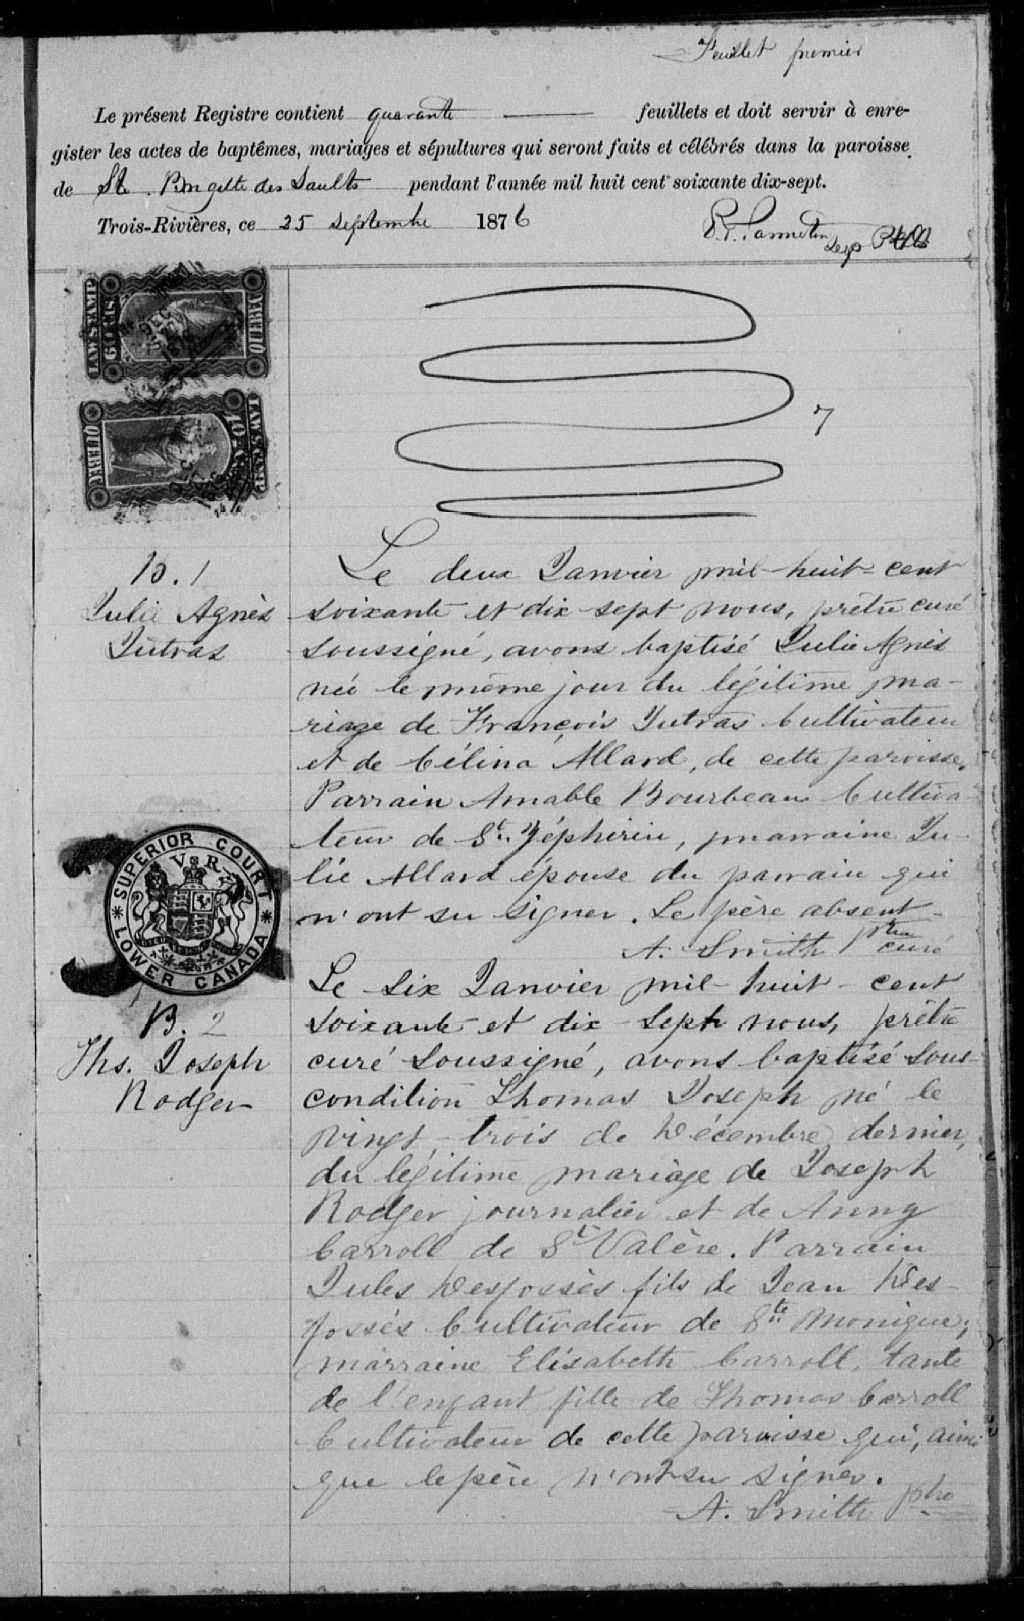 Feuillet premier
Le présent Registre contient quarante feuillets et doit servir à enre-
gister les actes de baptêmes, mariages et sépultures qui seront faits et célébrés dans la paroisse
de St. Brigette des Saults pendant l'année mil huit cent soixante dix-sept.
Trois-Rivières, ce 25 Septembre 1876
LAW STAMP
QUEBEC
QUEBEC
LAW STAMP
7
B. 1
Julie Agnès
Jutras
Le deux Janvier mil-huit-cent
soixante et dix-sept nous, prêtre curé
soussigné, avons baptisé Julie Agnès
née le même jour du légitime ma-
riage de François Jutras Cultivateur
et de Célina Allard, de cette paroisse.
Parrain Amable Bourbeau Cultiva-
teur de St. Zéphirin, marraine Ju-
lie Allard épouse du parrain qui
n'ont su signer. Le père absent.
A. Smith ptre
curé
SUPERIOR COURT
V R
LOWER CANADA
B. 2
Ths. Joseph
Rodger
Le six Janvier mil-huit-cent
soixante et dix-sept nous, prêtre
curé soussigné, avons baptisé sous
condition Thomas Joseph né le
vingt-trois de Décembre dernier,
du légitime mariage de Joseph
Rodger journalier et de Anny
Carroll de St Valère. Parrain
Jules Desfossés fils de Jean Des-
fossés Cultivateur de Ste Monique;
marraine Elisabeth Carroll, tante
de l'enfant fille de Thomas Carroll
Cultivateur de cette paroisse qui, ainsi
que le père n'ont su signer.
A. Smith ptre